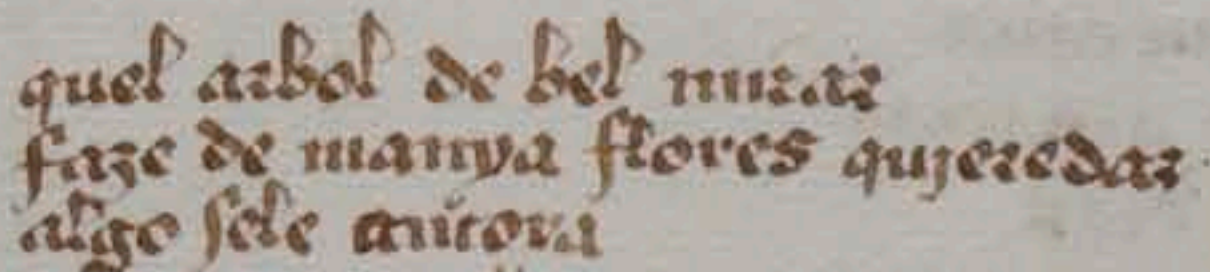 quel arbol de bel mirar
faze de manya flores quieredar
algo sele antoxa